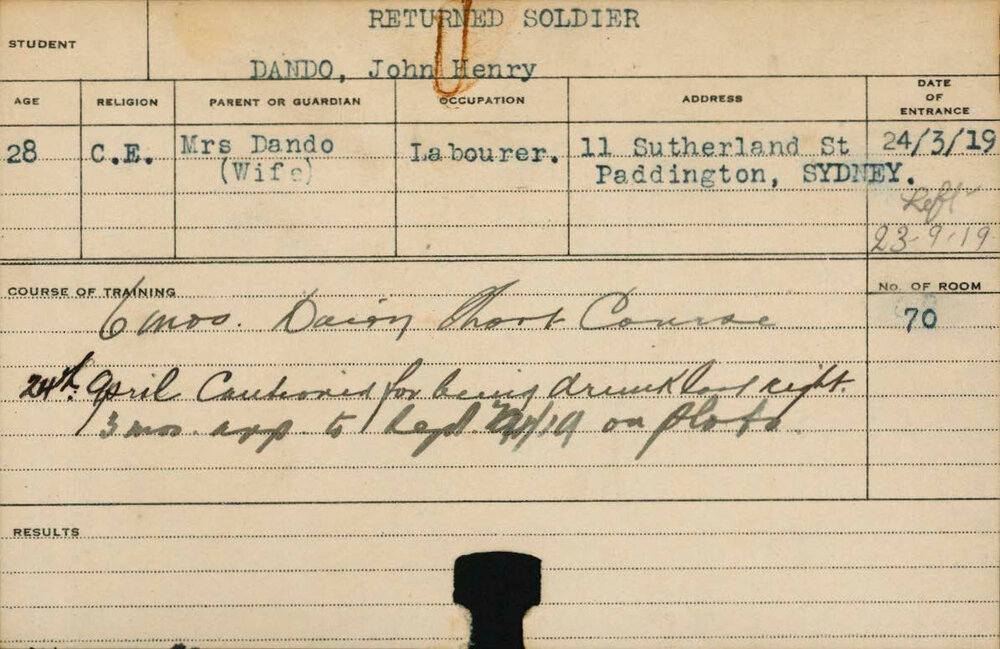 RETURNED SOLDIER
STUDENT
DANDO, John Henry
AGE RELIGION PARENT OR GUARDIAN OCCUPATION ADDRESS DATE OF ENTRANCE
28 C.E. Mrs Dando Labourer. 11 Sutherland St 24/3/19
(Wife) Paddington, SYDNEY.
Left
23-9-19
COURSE OF TRAINING No. OF ROOM
6 mos. Dairy Short Course 70
24th April Cautioned for being drunk last night.
3 mos. app. to Sept. /19 on
RESULTS